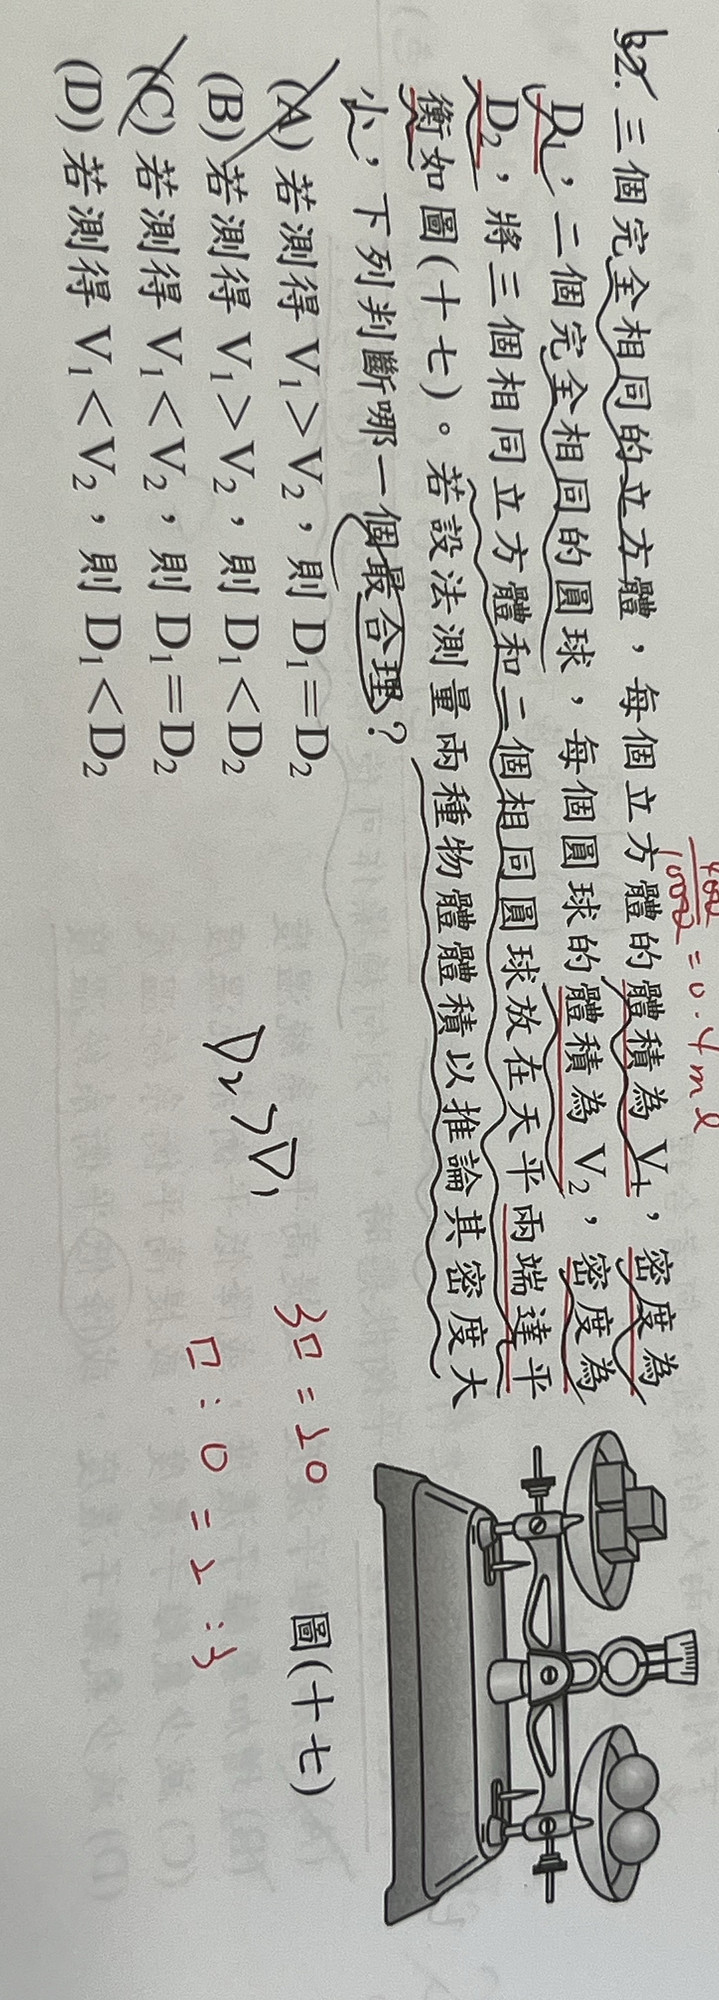 32. 三個完全相同的立方體，每個立方體的體積為 V₁，密度為
D₁，二個完全相同的圓球，每個圓球的體積為 V₂，密度為
D₂，將三個相同立方體和二個相同圓球放在天平兩端達平
衡如圖(十七)。若設法測量兩種物體體積以推論其密度大
小，下列判斷哪一個最合理？
(A) 若測得 V₁＞V₂，則 D₁＝D₂
(B) 若測得 V₁＞V₂，則 D₁＜D₂
(C) 若測得 V₁＜V₂，則 D₁＝D₂
(D) 若測得 V₁＜V₂，則 D₁＜D₂
圖(十七)
= 0.4 ml
D₂ > D₁
3□ = 2○
□ : ○ = 2 : 3